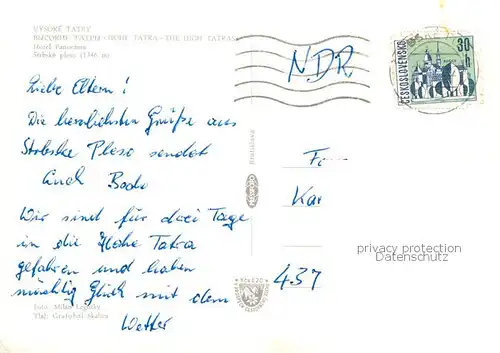 VYSOKÉ TATRY
ВЫСОКИЕ ТАТРЫ - HOHE TATRA - THE HIGH TATRAS
Hotel Panoráma
Štrbské pleso (1346 m)
N.D.R
ČESKOSLOVENSKO
30
h
Liebe Eltern!
Die herzlichsten Grüße aus
Strbske Pleso sendet
Euch Bodo
Wir sind für drei Tage
in die Hohe Tatra
gefahren und haben
mächtig Glück mit dem
Wetter
Bratislava
Kar
437
privacy protection
Datenschutz
Foto: Milan
Tlač: Grafoplast Skalica